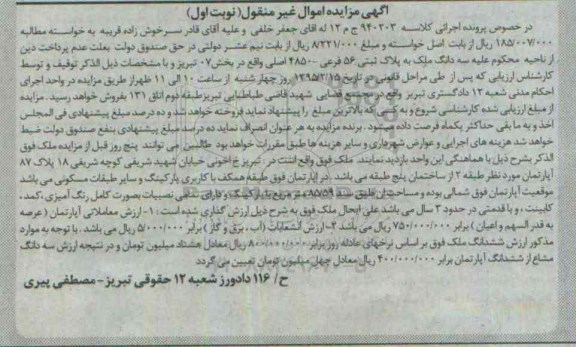 آگهی مزایده اموال غیر منقول (نوبت اول)
در خصوص پرونده اجرائی کلاسه ۹۴۰۳۰۳ ج م ۱۲ له آقای جعفر خلفی و علیه آقای قادر سرخوش زاده قریبه به خواسته مطالبه
۱۸۵/۰۰۷/۰۰۰ ریال از بابت اصل خواسته و مبلغ ۸/۲۲۱/۰۰۰ ریال از بابت نیم عشر دولتی در حق صندوق دولت بعلت عدم پرداخت دین
از ناحیه محکوم علیه سه دانگ ملک به پلاک ثبتی ۵۶ فرعی ۴۸۵۰ اصلی واقع در بخش ۰۷ تبریز و با مشخصات ذیل الذکر توقیف و توسط
کارشناس ارزیابی که پس از طی مراحل قانونی در تاریخ ۱۳۹۵/۲/۱۵ روز چهار شنبه از ساعت ۱۰ الی ۱۱ ظهر از طریق مزایده در واحد اجرای
احکام مدنی شعبه ۱۲ دادگستری تبریز واقع در مجتمع قضایی شهید قاضی طباطبایی تبریز طبقه دوم اتاق ۱۳۱ بفروش خواهد رسید. مزایده
از مبلغ ارزیابی شده کارشناسی شروع و به کسی که بالاترین مبلغ را پیشنهاد نماید فروخته خواهد شد و ده درصد مبلغ پیشنهادی فی المجلس
اخذ و به ما بقی حداکثر یکماه فرصت داده میشود. برنده مزایده به هر عنوان انصراف نماید ده درصد مبلغ پیشنهادی بنفع صندوق دولت ضبط
خواهد شد هزینه های اجرایی و عوارض شهرداری و سایر هزینه ها طبق مقررات خواهد بود طالبین می توانند پنج روز قبل از مزایده ملک فوق
الذکر بشرح ذیل با هماهنگی این واحد بازدید نمایند. ملک فوق واقع است در: تبریز خ اخونی خیابان شهید شریفی کوچه شریفی ۱۸ پلاک ۸۷
آپارتمان مورد نظر طبقه ۲ از ساختمان پنج طبقه می باشد. در آپارتمان فوق طبقه همکف با کاربری پارکینگ و سایر طبقات مسکونی می باشد
موقعیت آپارتمان فوق شمالی بوده و مساحت آن طبق سند ۸۵/۵۹ متر مربع با پارکینگ و دارای تمامی نصبیات بصورت کامل رنگ آمیزی، کمد،
کابینت، و با قدمتی در حدود ۳ سال می باشد علی ایحال ملک فوق به شرح ذیل ارزش گذاری شده است: ۱- ارزش معاملاتی آپارتمان (عرصه
به قدر السهم و اعیان) برابر ۷۵۰/۰۰۰/۰۰۰ ریال می باشد ۲- ارزش انشعابات (آب، برق و گاز) برابر ۵/۰۰۰/۰۰۰ ریال می باشد. با توجه به موارد
مذکور ارزش ششدانگ ملک فوق بر اساس نرخهای عادله روز برابر ۸۰۰/۰۰۰/۰۰۰ ریال معادل هشتاد میلیون تومان و در نتیجه ارزش سه دانگ
مشاع از ششدانگ آپارتمان برابر ۴۰۰/۰۰۰/۰۰۰ ریال معادل چهل میلیون تومان تعیین می گردد
ح/ ۱۱۶ دادورز شعبه ۱۲ حقوقی تبریز- مصطفی پیری